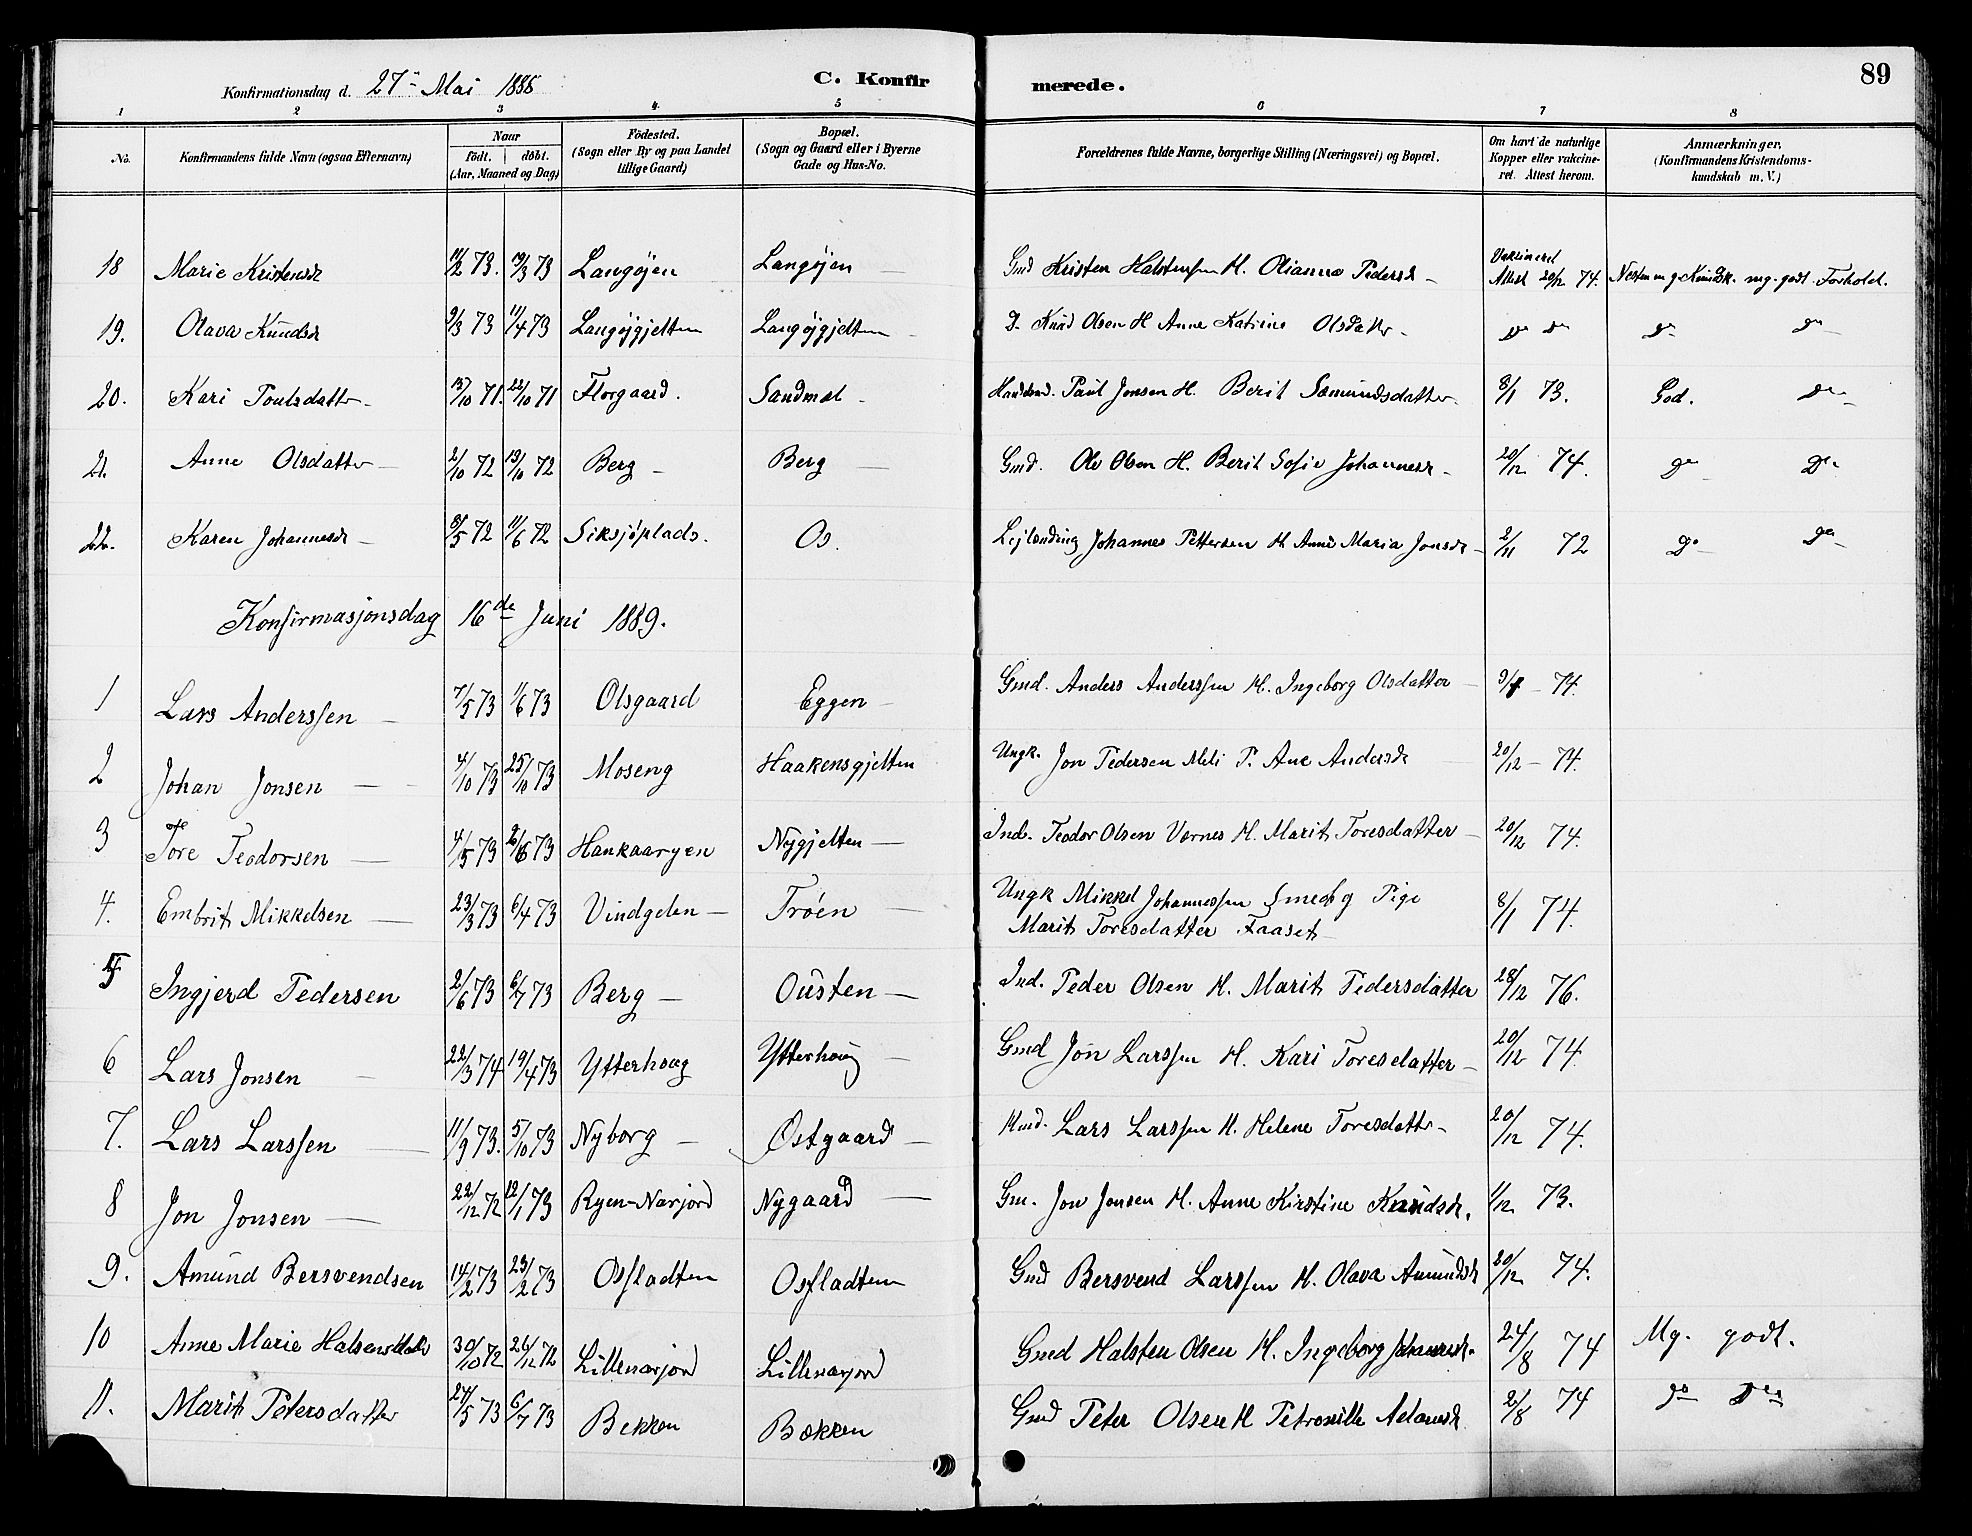 89
Konfirmationsdag d. 27de Mai 1888 C. Konfirmerede.
1 2 3 4 5 6 7 8
No. Konfirmandens fulde Navn (ogsaa Efternavn) Naar født. døbt. (Aar, Maaned og Dag) Fødested. (Sogn eller By og paa Landet tillige Gaard) Bopæl. (Sogn og Gaard eller i Byerne Gade og Hus-No. Forældrenes fulde Navne, borgerlige Stilling (Næringsvei) og Bopæl. Om havt de naturlige Kopper eller vakcineret. Attest herom. Anmærkninger. (Konfirmandens Kristendomskundskab m. V.)
18 Marie Kristensd 11/2 73. 19/3 73 Langøjen Langøjen Gmd Kristen Halstensen H. Olianna Pedersd Vaksineret Attest 20/12 74. Nesten m g Kundsk. mg. godt Forhold.
19. Olava Knudsd 9/3 73 11/4 73 Langøjgjelten Langøjgjelten D. Knud Olsen H Anne Katrine Olsdatter Do Do Do Do
20. Kari Poulsdatter 13/10 71. 22/10 71 Florgaard. Sandmæl Paul Jensen H. Berit Sæmundsdatter 8/1 73. God. Do
21. Anne Olsdatter 2/10 72 13/10 72 Berg Berg Gmd. Ole Olsen H. Berit Sofie Johannesd 20/12 74. Do Do
22. Karen Johannesd 8/5 72 11/6 72 Siksjøplads. Os. Lejlænding Johannes Pettersen H Anne Maria Jonsd 2/11 72 Do Do
Konfirmasjonsdag 16de Juni 1889.
1 Lars Anderssen 7/5 73 1/6 73 Olsgaard Eggen Gmd. Anders Anderssen H. Ingeborg Olsdatter 74.
2 Johan Jonsen 4/10 73 25/10 73 Moseng Haakensgjelten Ungk. Jon Pedersen Meli P. Ane Andersd 20/12 74.
3 Tore Teodorsen 4/5 73 73 Hankaaryen Nygjelten Ind. Teodor Olsen Vornes H. Marit Toresdatter 20/12 74.
4. Embrit Mikkelsen 23/3 73 6/4 73 Vindgelen Trøen Ungk Mikkel Johannessen Smedsg Pige
Marit Toresdatter Faaset 8/1 74.
5 Ingjerd Pedersen 2/6 73 6/7 73 Berg Ousten Ind. Peder Olsen H. Marit Pedersdatter 28/12 76.
6 Lars Jonsen 22/3 74 19/4 73 Ytterhoug Ytterhoug Gmd Jon Larssen H. Kari Toresdatter 20/12 74.
7. Lars Larssen 11/9 73. 5/10 73 Nyborg Østgaard Hmd. Lars Larssen H. Helene Toresdatter 20/12 74.
8 Jon Jonsen 22/12 72 12/1 73 Ryen-Narjord Nygaard Gm. Jon Jonsen H. Anne Kirstine Knudsd. 1/12 73.
9. Amund Bersvendsen 14/2 73 23/2 73 Osfladten Osfladten Gmd Bersvend Larssen H. Olava Amundsd 20/12 74.
10 Anne Marie 30/10 72 26/12 72 Lillenarjord Lillenarjord Gmd Halsten Olsen H. Ingeborg Johannesd. 24/8 74 Mg. godt.
11. Marit Petersdatter 24/5 73 6/7 73 Bekken Bækken Gmd Peter Olsen H Petronille Adamsd 2/8 74 Do Do